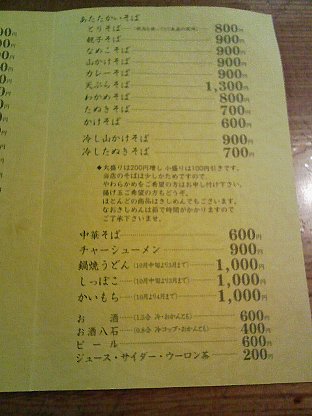 あたたかいそば
とりそば 800円
親子そば 900円
なめこそば 900円
山かけそば 900円
カレーそば 900円
天ぷらそば 1,300円
わかめそば 800円
たぬきそば 700円
かけそば 600円
冷し山かけそば 900円
冷したぬきそば 700円
◆大盛りは200円増し 小盛りは100円引きです。
当店のそばは少しかためですので、
やわらかめをご希望の方はお申し付け下さい。
揚げ玉ご希望の方もどうぞ。
ほとんどの商品はきしめんでもございます。
なおきしめんは茹で時間がかかりますので
ご了承下さいませ。
中華そば 600円
チャーシューメン 900円
鍋焼うどん (10月中旬より3月まで) 1,000円
しっぽこ (10月中旬より3月まで) 1,000円
かいもち (10月より4月まで) 1,000円
お酒 (1.5合 冷・おかんとも) 600円
お酒八石 (0.8合 冷コップ・おかんとも) 400円
ビール 600円
ジュース・サイダー・ウーロン茶 200円
00円
00円
00円
00円
00円
00円